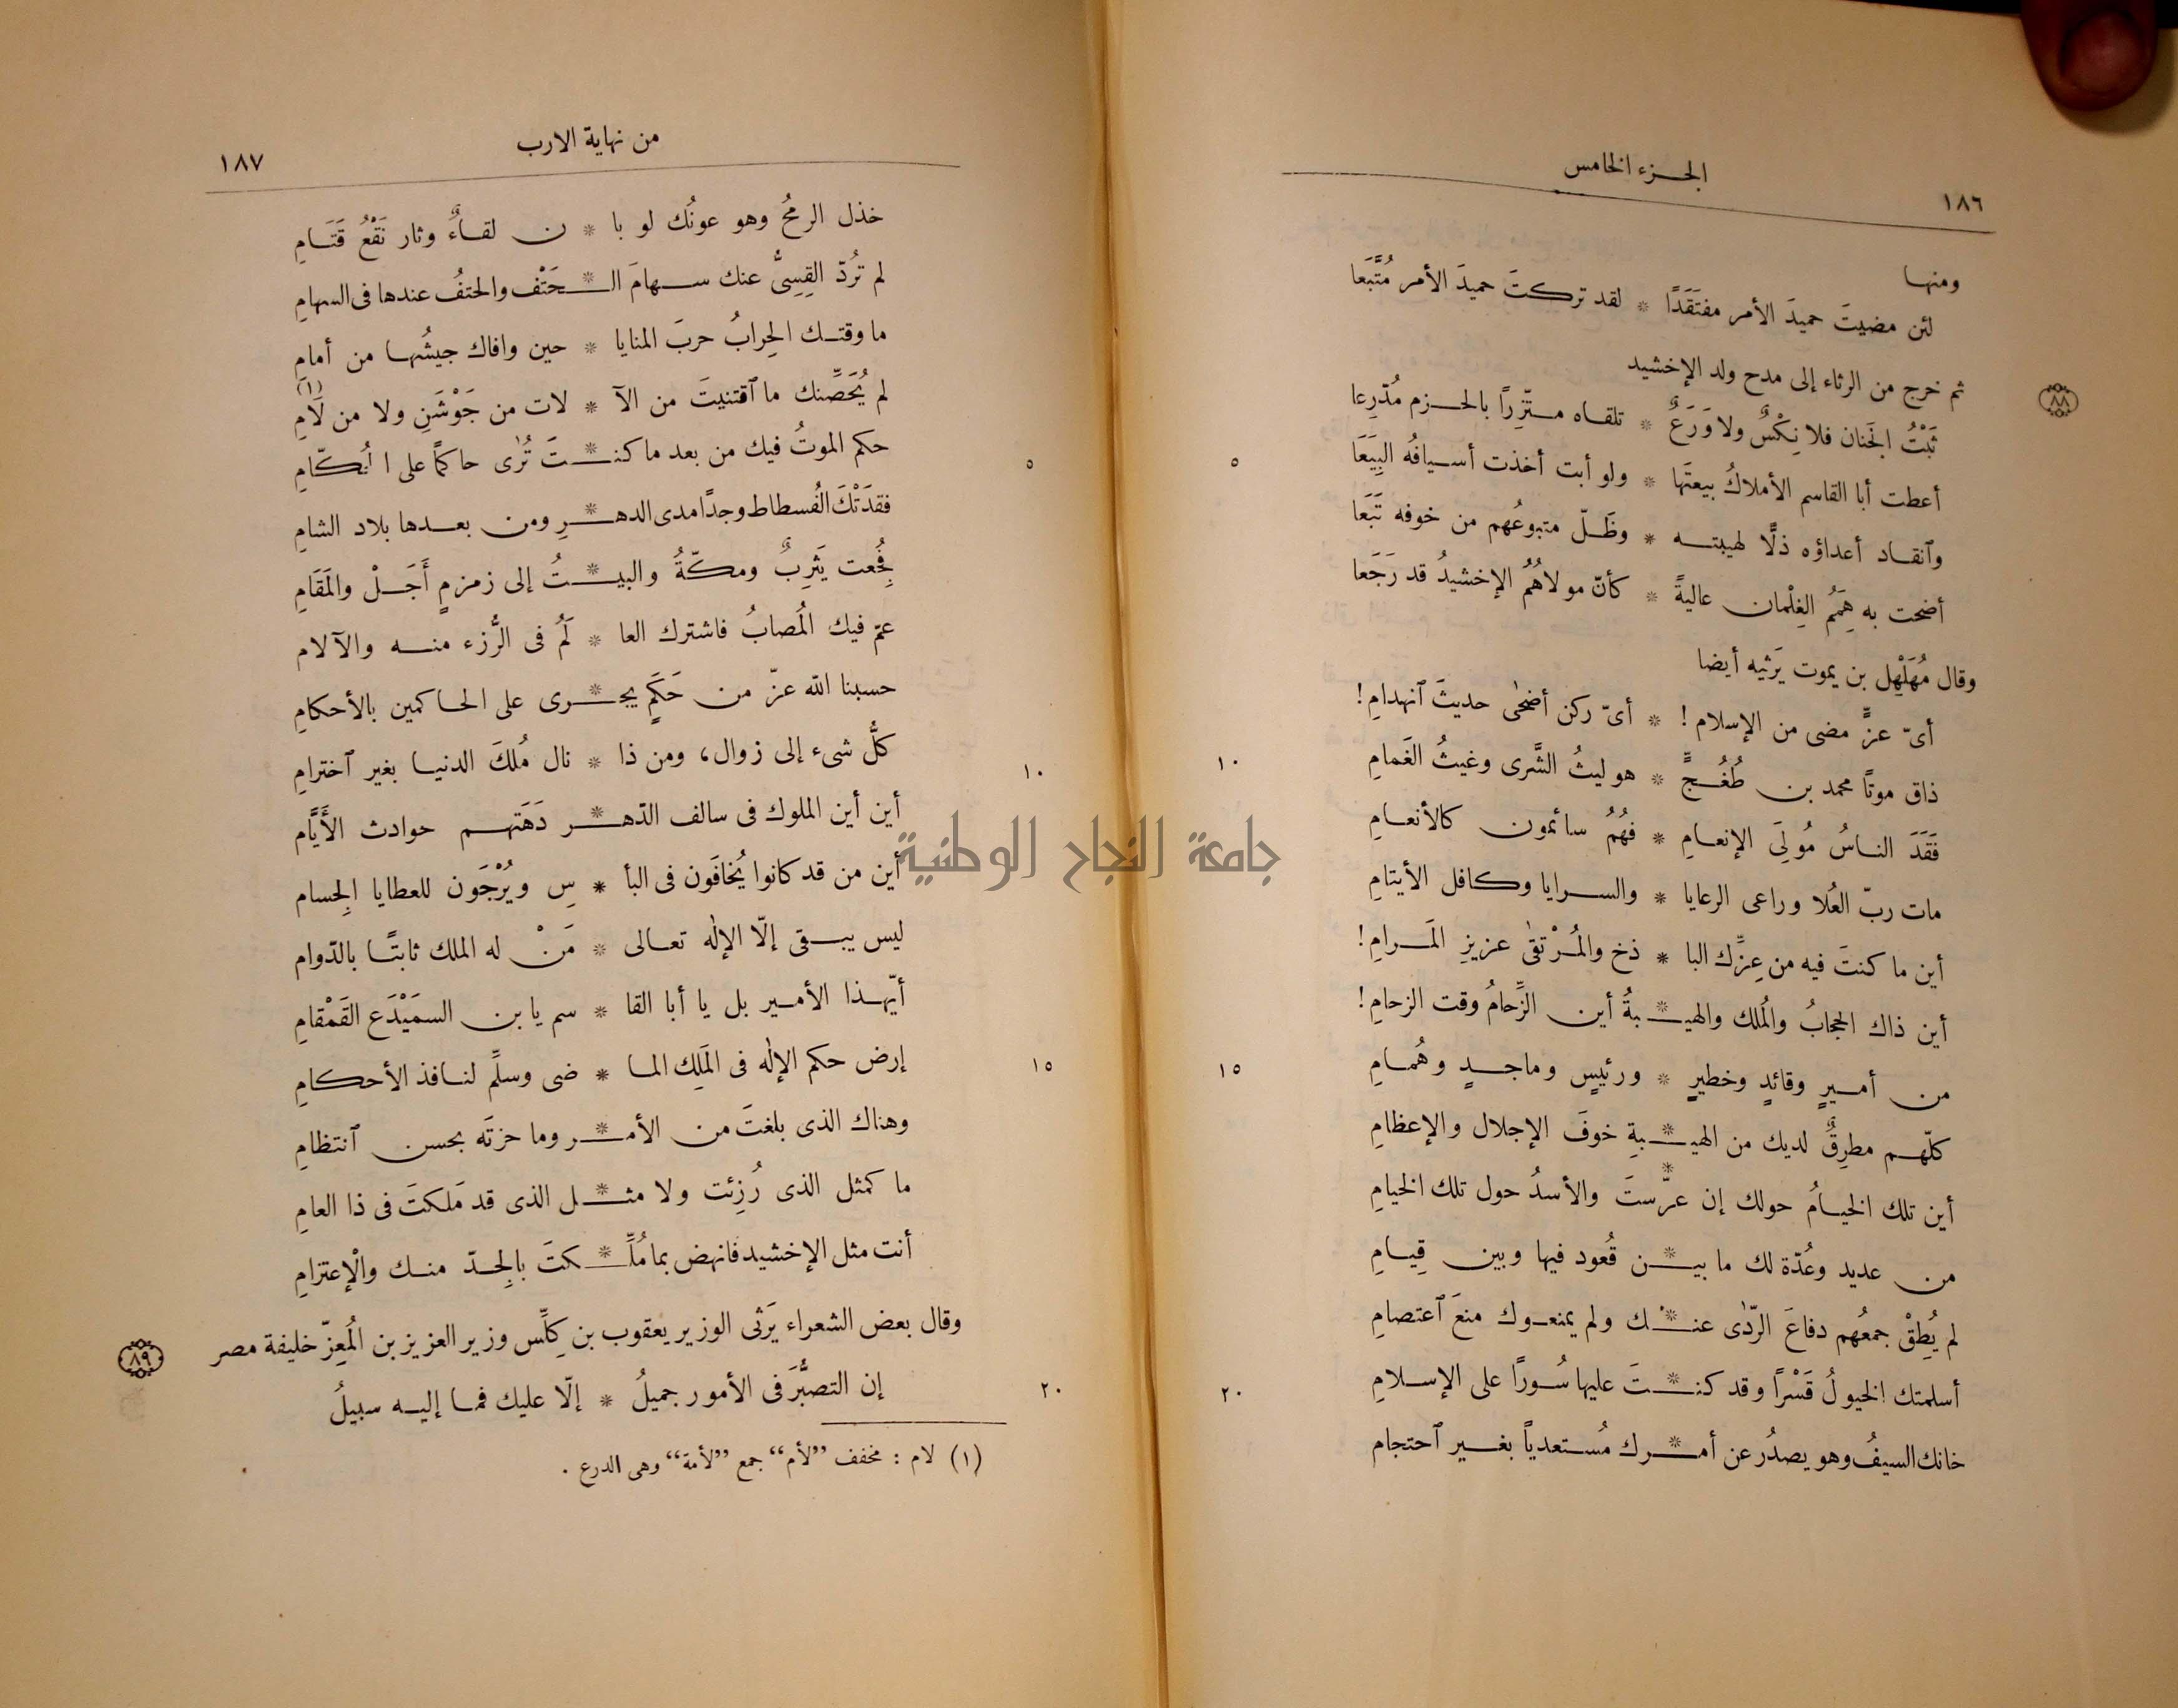 ١٨٦
الجزء الخامس
ومنها
لئن مضيتَ حميدَ الأمر مفتَقَدًا * لقد تركتَ حميدَ الأمر مُتَّبَعَا
ثم خرج من الرثاء إلى مدح ولد الإخشيد
٨٨
ثَبْتُ الجَنان فلا نِكْسٌ ولا وَرَعٌ * تلقاه متّزِرًا بالحزم مُدّرِعا
أعطت أبا القاسم الأملاكُ بيعتَها * ولو أبت أخذت أسيافُه البِيَعَا
٥
وٱنقاد أعداؤه ذلًّا لهيبته * وظَلّ متبوعُهم من خوفه تَبَعَا
أضحت به هِمَمُ الغِلْمان عاليةً * كأنّ مولاهُمُ الإخشيدُ قد رَجَعا
وقال مُهَلْهِل بن يموت يَرثيه أيضا
أىّ عزٍّ مضى من الإسلام! * أىّ ركن أضحىٰ حديثَ ٱنهدامِ!
ذاق موتًا محمد بن طُغُجٍّ * هو ليثُ الشَّرى وغيثُ الغَمامِ
١٠
فَقَدَ الناسُ مُولِىَ الإنعامِ * فهُمُ سائمون كالأنعامِ
مات ربّ العُلا وراعى الرعايا * والسرايا وكافل الأيتامِ
أين ما كنتَ فيه من عِزِّك البا * ذخ والمُرْتقىٰ عزيزِ المَرامِ!
أين ذاك الحجابُ والمُلك والهيـ * ـبةُ أين الزِّحامُ وقت الزحامِ!
من أميرٍ وقائدٍ وخطيرٍ * ورئيسٍ وماجدٍ وهُمامِ
١٥
كلّهم مطرِقٌ لديك من الهيـ * ـبةِ خوفَ الإجلال والإعظامِ
أين تلك الخيامُ حولك إن عرّ * ستَ والأسدُ حول تلك الخيامِ
من عديد وعُدّة لك ما بيـ * ـن قُعود فيها وبين قِيامِ
لم يُطِقْ جمعُهم دفاعَ الرّدٰى عنـ * ـك ولم يمنعوك منعَ ٱعتصامِ
أسلمتك الخيولُ قَسْرًا وقد كنـ * ـتَ عليها سُورًا على الإسلامِ
٢٠
خانك السيفُ وهو يصدُر عن أمـ * ـرك مُستعدياً بغير ٱحتجام
من نهاية الارب
١٨٧
خذل الرمحُ وهو عونُك لو با * ن لقاءٌ وثار نَقْعُ قَتَامِ
لم تُرُدّ القِسِىُّ عنك سهامَ الـ * ـحَتْف والحتفُ عندها فى السهامِ
ما وقتك الحِرابُ حربَ المنايا * حين وافاك جيشُها من أمامِ
لم يُحَصِّنك ما ٱقتنيتَ من الآ * لات من جَوْشَنِ ولا من لَامِ (١)
حكم الموتُ فيك من بعد ما كنـ * ـتَ تُرٰى حاكمًا على الحُكّامِ
٥
فقدَتْكَ الفُسطاط وجدًا مدى الدهـ * ـرِ ومن بعدها بلاد الشامِ
فُجِعت يَثرِبٌ ومكّةُ والبيـ * ـتُ إلى زمزمٍ أَجَلْ والمَقَامِ
عمّ فيك المُصابُ فاشترك العا * لَمُ فى الرُّزء منه والآلام
حسبنا الله عزّ من حَكَمٍ يجـ * ـرى على الحاكمين بالأحكامِ
كلُّ شىء إلى زوال، ومن ذا * نال مُلكَ الدنيا بغير ٱخترامِ
١٠
أين أين الملوك فى سالف الدّهـ * ـر دَهَتهم حوادث الأَيَّام
أين من قد كانوا يُخافَون فى البأ * سِ ويُرْجَون للعطايا الجِسام
ليس يبقى إلّا الإلٰه تعالى * مَنْ له الملك ثابتًا بالدّوام
أيّهذا الأمير بل يا أبا القا * سم يا بن السمَيْدَع القَمْقامِ
إرض حكم الإلٰه فى المَلِك الما * ضى وسلِّم لنافذ الأحكامِ
١٥
وهناك الذى بلغتَ من الأمـ * ـر وما حزتَه بحسن ٱنتظامِ
ما كمثل الذى رُزِئت ولا مثـ * ـل الذى قد مَلكتَ فى ذا العامِ
أنت مثل الإخشيد فانهض بما مُلِّـ * ـكتَ بالجِدّ منك والْإعتزامِ
وقال بعض الشعراء يَرثى الوزير يعقوب بن كِلِّس وزير العزيز بن المُعِزّ خليفة مصر
٨٩
إن التصبُّرَ فى الأمور جميلُ * إلّا عليك فما إليه سبيلُ
٢٠
(١) لام : مخفف "لأم" جمع "لأمة" وهى الدرع .
جامعة النجاح الوطنية